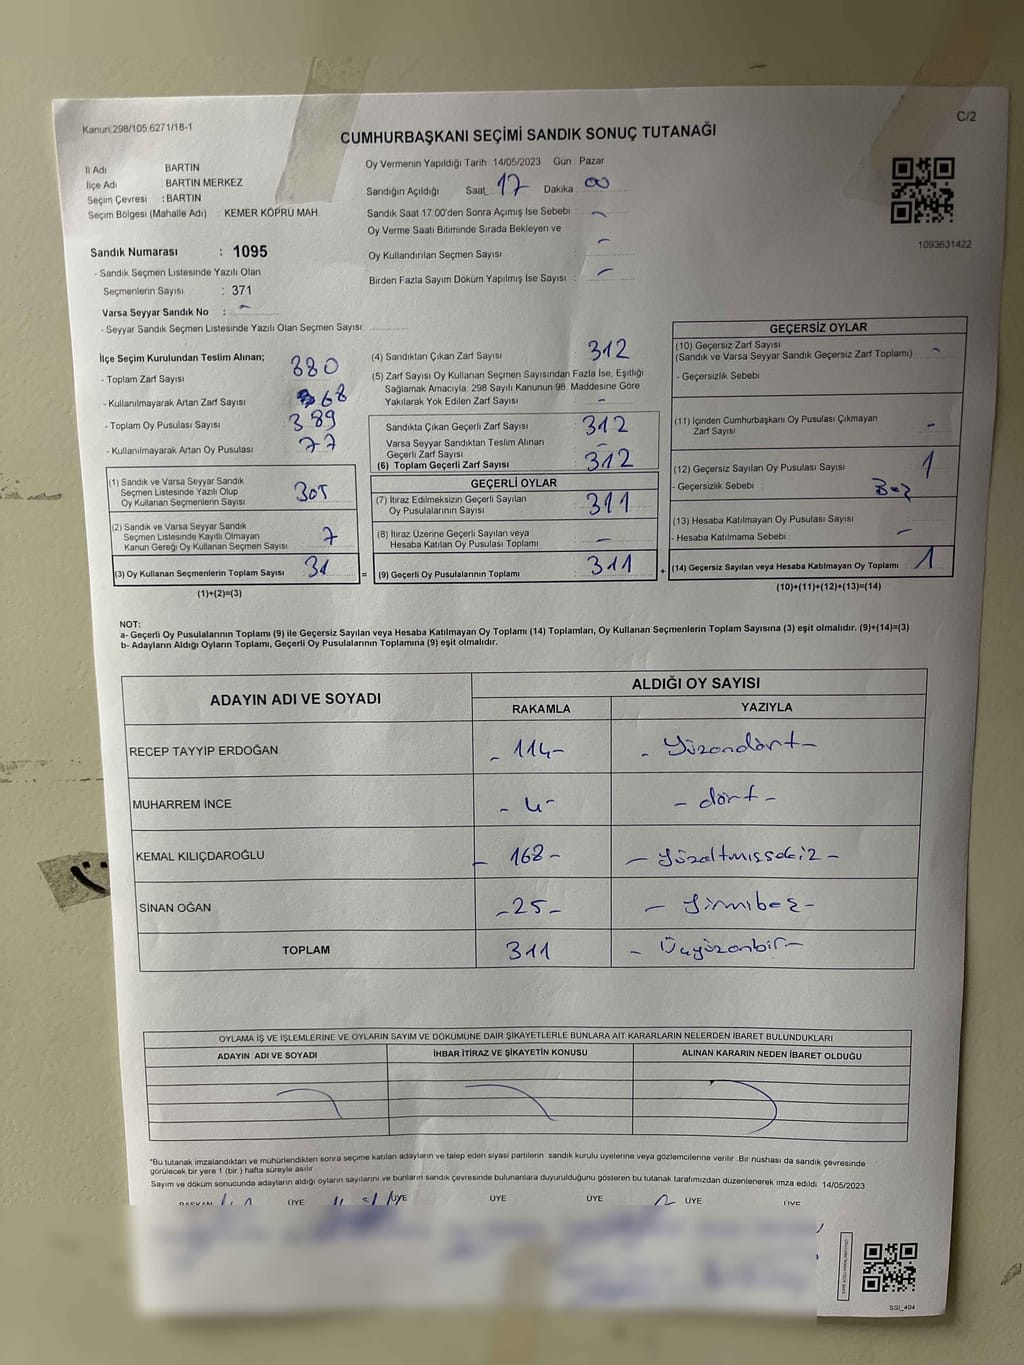 Kanun:298/105,6271/18-1
C/2
CUMHURBAŞKANI SEÇİMİ SANDIK SONUÇ TUTANAĞI
İl Adı BARTIN
İlçe Adı : BARTIN MERKEZ
Seçim Çevresi : BARTIN
Seçim Bölgesi (Mahalle Adı) : KEMER KÖPRÜ MAH.
Oy Vermenin Yapıldığı Tarih 14/05/2023 Gün : Pazar
Sandığın Açıldığı Saat 17 Dakika 00
Sandık Saat 17.00'den Sonra Açılmış İse Sebebi -
Oy Verme Saati Bitiminde Sırada Bekleyen ve
Oy Kullandırılan Seçmen Sayısı : -
Birden Fazla Sayım Döküm Yapılmış İse Sayısı : -
1093631422
Sandık Numarası : 1095
- Sandık Seçmen Listesinde Yazılı Olan
Seçmenlerin Sayısı : 371
Varsa Seyyar Sandık No : -
- Seyyar Sandık Seçmen Listesinde Yazılı Olan Seçmen Sayısı:
İlçe Seçim Kurulundan Teslim Alınan;
- Toplam Zarf Sayısı 380
- Kullanılmayarak Artan Zarf Sayısı 68
- Toplam Oy Pusulası Sayısı 389
- Kullanılmayarak Artan Oy Pusulası 77
(1) Sandık ve Varsa Seyyar Sandık
Seçmen Listesinde Yazılı Olup
Oy Kullanan Seçmenlerin Sayısı 305
(2) Sandık ve Varsa Seyyar Sandık
Seçmen Listesinde Kayıtlı Olmayan
Kanun Gereği Oy Kullanan Seçmen Sayısı 7
(3) Oy Kullanan Seçmenlerin Toplam Sayısı =
(1)+(2)=(3)
(4) Sandıktan Çıkan Zarf Sayısı 312
(5) Zarf Sayısı Oy Kullanan Seçmen Sayısından Fazla İse, Eşitliği
Sağlamak Amacıyla; 298 Sayılı Kanunun 98. Maddesine Göre
Yakılarak Yok Edilen Zarf Sayısı -
Sandıkta Çıkan Geçerli Zarf Sayısı 312
Varsa Seyyar Sandıktan Teslim Alınan
Geçerli Zarf Sayısı -
(6) Toplam Geçerli Zarf Sayısı 312
GEÇERLİ OYLAR
(7) İtiraz Edilmeksizin Geçerli Sayılan
Oy Pusulalarının Sayısı 311
(8) İtiraz Üzerine Geçerli Sayılan veya
Hesaba Katılan Oy Pusulası Toplamı -
(9) Geçerli Oy Pusulalarının Toplamı 311 +
GEÇERSİZ OYLAR
(10) Geçersiz Zarf Sayısı
(Sandık ve Varsa Seyyar Sandık Geçersiz Zarf Toplamı) : -
- Geçersizlik Sebebi :
(11) İçinden Cumhurbaşkanı Oy Pusulası Çıkmayan
Zarf Sayısı -
(12) Geçersiz Sayılan Oy Pusulası Sayısı 1
- Geçersizlik Sebebi :
(13) Hesaba Katılmayan Oy Pusulası Sayısı
- Hesaba Katılmama Sebebi : -
(14) Geçersiz Sayılan veya Hesaba Katılmayan Oy Toplamı 1
(10)+(11)+(12)+(13)=(14)
NOT:
a- Geçerli Oy Pusulalarının Toplamı (9) ile Geçersiz Sayılan veya Hesaba Katılmayan Oy Toplamı (14) Toplamları, Oy Kullanan Seçmenlerin Toplam Sayısına (3) eşit olmalıdır. (9)+(14)=(3)
b- Adayların Aldığı Oyların Toplamı, Geçerli Oy Pusulalarının Toplamına (9) eşit olmalıdır.
ADAYIN ADI VE SOYADI ALDIĞI OY SAYISI
RAKAMLA YAZIYLA
RECEP TAYYİP ERDOĞAN - 114 - - Yüzondört -
MUHARREM İNCE - 4 - - dört -
KEMAL KILIÇDAROĞLU - 168 - - Yüzaltmışsekiz -
SİNAN OĞAN - 25 - - Yirmibeş -
TOPLAM 311 - Üçyüzonbir -
OYLAMA İŞ VE İŞLEMLERİNE VE OYLARIN SAYIM VE DÖKÜMÜNE DAİR ŞİKAYETLERLE BUNLARA AİT KARARLARIN NELERDEN İBARET BULUNDUKLARI
ADAYIN ADI VE SOYADI İHBAR İTİRAZ VE ŞİKAYETİN KONUSU ALINAN KARARIN NEDEN İBARET OLDUĞU
*Bu tutanak imzalandıktan ve mühürlendikten sonra seçime katılan adayların ve talep eden siyasi partilerin sandık kurulu üyelerine veya gözlemcilerine verilir. Bir nüshası da sandık çevresinde
görülecek bir yere 1 (bir) hafta süreyle asılır.
Sayım ve döküm sonucunda adayların aldığı oyların sayılarını ve bunların sandık çevresinde bulunanlara duyurulduğunu gösteren bu tutanak tarafımızdan düzenlenerek imza edildi. 14/05/2023
BAŞKAN ÜYE ÜYE ÜYE ÜYE ÜYE ÜYE
SSI_404